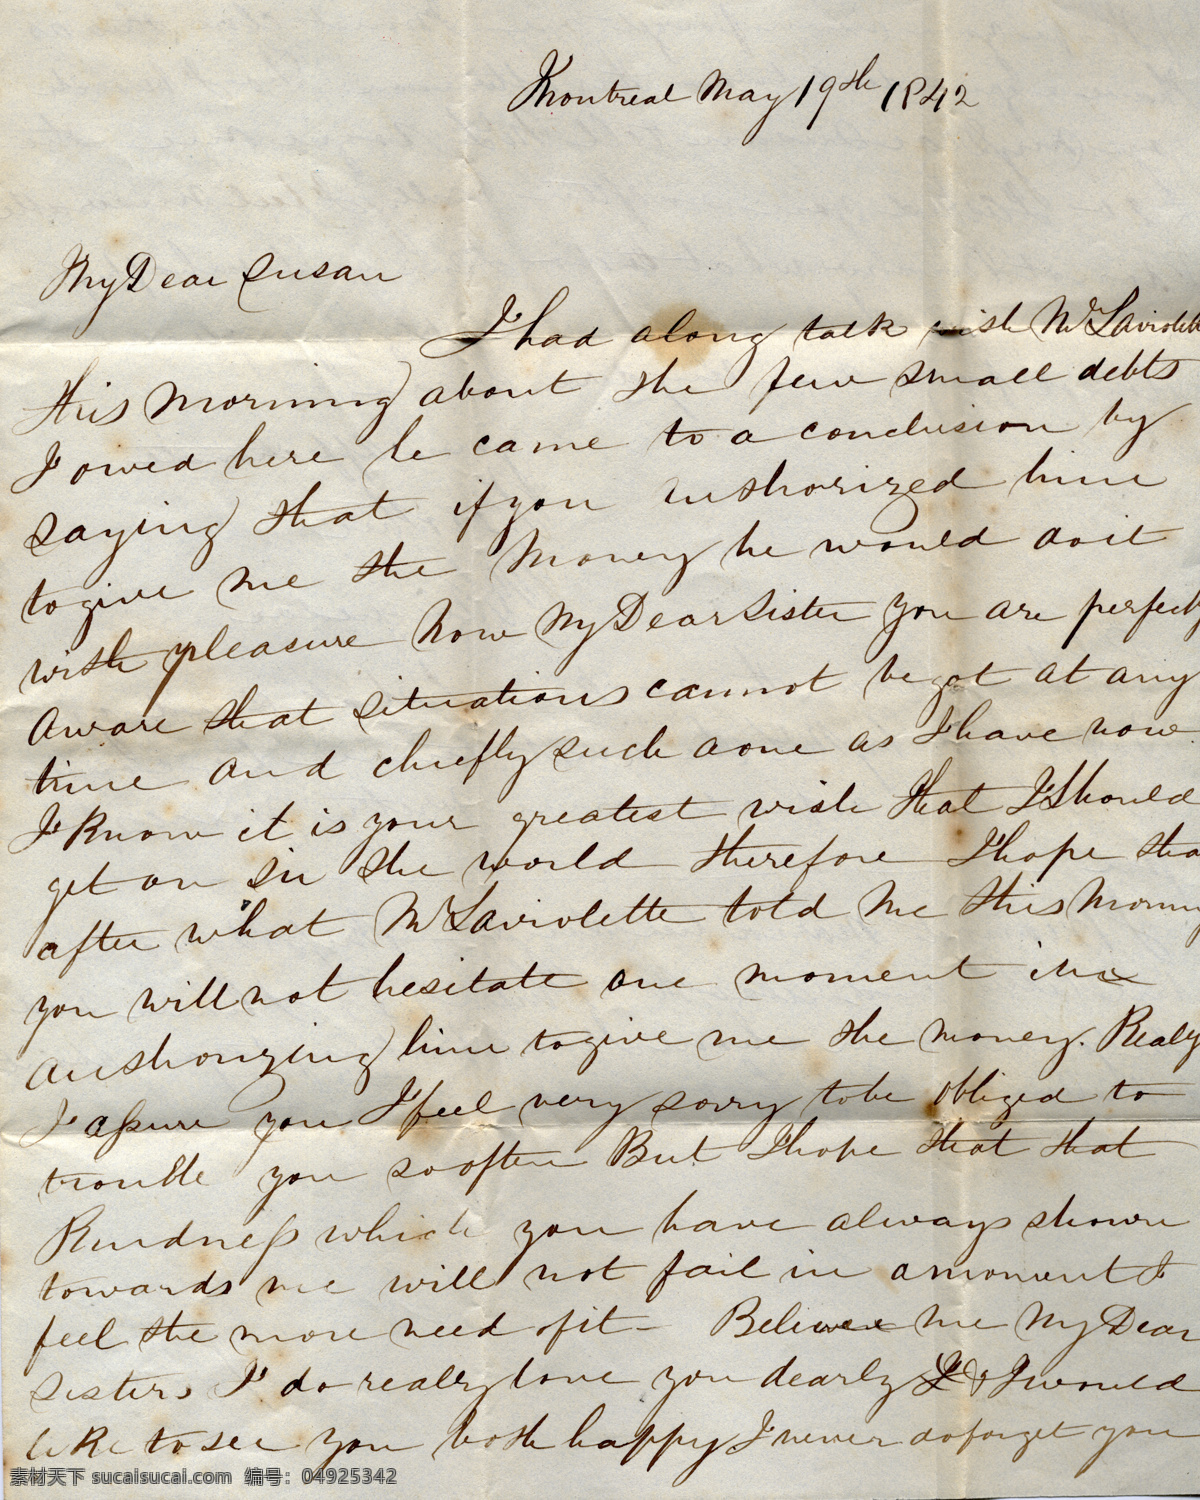 Montreal May 19th 1842
My Dear Susan
I had a long talk with Mr Laviolett
this morning about the few small debts
I owed here he came to a conclusion by
saying that if you authorized him
to give me the money he would do it
with pleasure now My Dear Sister you are perfectly
aware that situations cannot be got at any
time and chiefly such a one as I have now.
I know it is your greatest wish that I should
get on in the world therefore I hope tha
after what Mr Laviolette told me this morning
you will not hesitate one moment in
authorizing him to give me the money. Realy
I assure you I feel very sorry to be obliged to
trouble you so often But I hope that that
Kindness which you have always shown
towards me will not fail in a moment I
feel the more need of it - Believe me My Dear
Sisters I do really love you dearly & I would
like to see you both happy I never do forget you
素材天下 sucaisucai.com 编号: 04925342